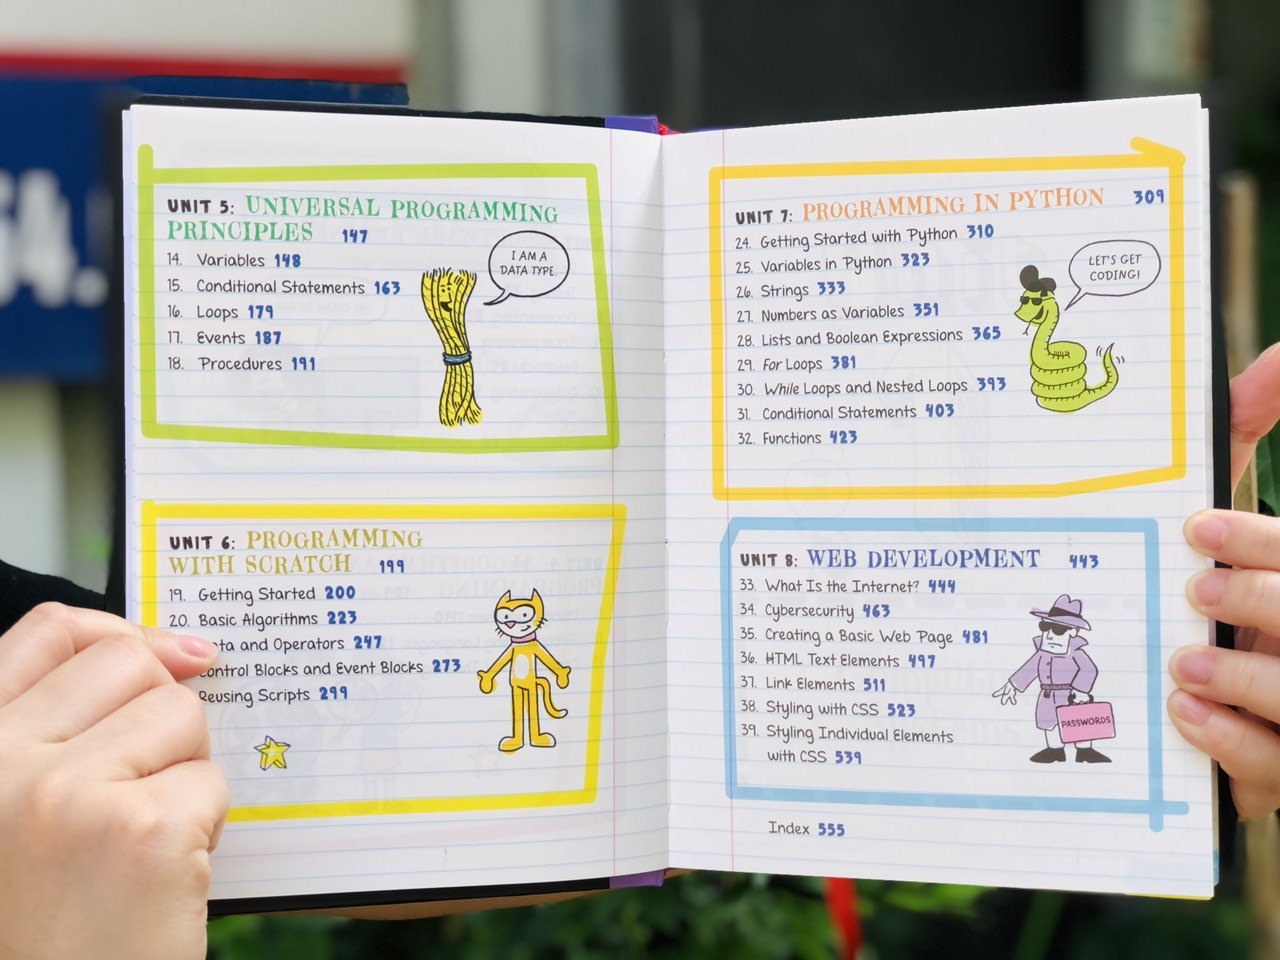 54.
UNIT 5: UNIVERSAL PROGRAMMING
PRINCIPLES 147
14. Variables 148
15. Conditional Statements 163
16. Loops 179
17. Events 187
18. Procedures 191
I AM A
DATA TYPE.
UNIT 6: PROGRAMMING
WITH SCRATCH 199
19. Getting Started 200
20. Basic Algorithms 223
and Operators 247
Blocks and Event Blocks 273
Reusing Scripts 299
UNIT 7: PROGRAMMING IN PYTHON 309
24. Getting Started with Python 310
25. Variables in Python 323
26. Strings 333
27. Numbers as Variables 351
28. Lists and Boolean Expressions 365
29. For Loops 381
30. While Loops and Nested Loops 393
31. Conditional Statements 403
32. Functions 423
LET'S GET
CODING!
UNIT 8: WEB DEVELOPMENT 443
33. What Is the Internet? 444
34. Cybersecurity 463
35. Creating a Basic Web Page 481
36. HTML Text Elements 497
37. Link Elements 511
38. Styling with CSS 523
39. Styling Individual Elements
with CSS 539
PASSWORDS
Index 555